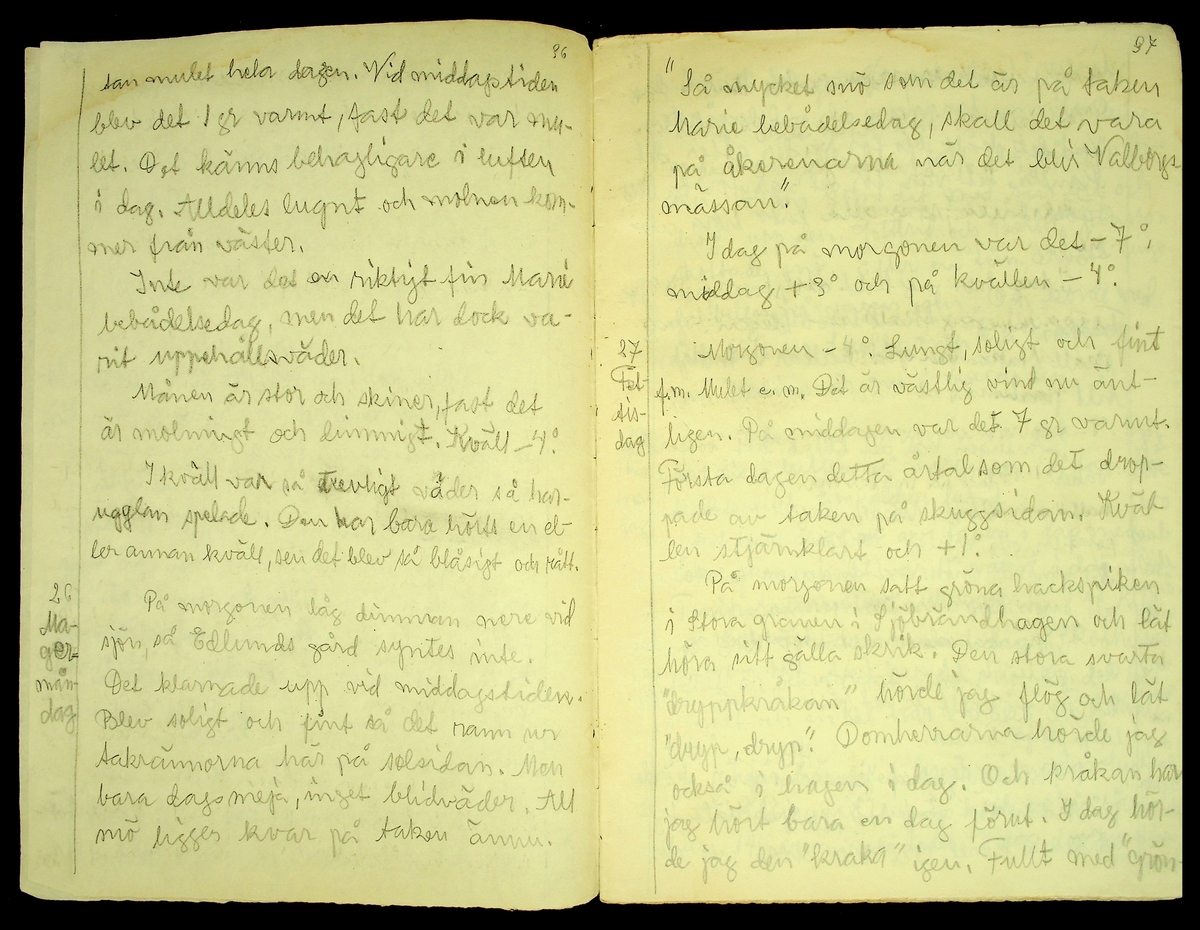 96
tan mulet hela dagen. Vid middagstiden
blev det 1 gr varmt, fast det var mu-
let. Det känns behagligare i luften
i dag. Alldeles lugnt och molnen kom-
mer från väster.
Inte var det en riktigt fin Marie
bebådelsedag, men det har dock va-
rit uppehållsväder.
Månen är stor och skiner, fast det
är molnigt och dimmigt. Kväll -4°.
I kväll var så trevligt väder så har
ugglan spelade. Den har bara hörts en el-
ler annan kväll, sen det blev så blåsigt och rått.
26
Ma-
ger-
mån-
dag
På morgonen låg dimman nere vid
sjön, så Edlunds gård syntes inte.
Det klarnade upp vid middagstiden.
Blev soligt och fint så det rann ur
takrännorna här på solsidan. Men
bara dagsmeja, inget blidväder. All
snö ligger kvar på taken ännu.
97
"Så mycket snö som det är på taken
Marie bebådelsedag, skall det vara
på åkerrenarna när det blir Valborgs-
mässan".
I dag på morgonen var det -7°,
middag +3° och på kvällen -4°.
27
Fet-
tis-
dag
Morgonen -4°. Lungt, soligt och fint
f.m. Mulet e.m. Det är västlig vind nu änt-
ligen. På middagen var det 7 gr varmt.
Första dagen detta årtal som det drop-
pade av taken på skuggsidan. Kväl-
len stjärnklart och +1°.
På morgonen satt gröna hackspiken
i Stora granen i Sjöbrändhagen och lät
höra sitt gälla skrik. Den stora svarta
"dryppkråkan" hörde jag flög och lät
"dryp, dryp". Domherrarna hörde jag
också i hagen i dag. Och kråkan har
jag hört bara en dag förut. I dag hör-
de jag den "kraka" igen. Fullt med "grön-